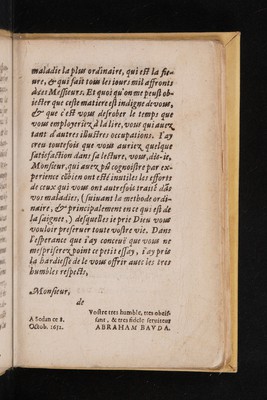 maladie la plus ordinaire, qui est la fie-
ure, & qui fait tous les iours mil affronts
à ces Messieurs. Et quoi qu'on me peust ob-
iecter que ceste matiere est indigne de vous,
& que c'est vous desrober le temps que
vous employeriez à la lire, vous qui auez
tant d'autres illustres occupations. I'ay
creu toutefois que vous auriez quelque
satisfaction dans sa lecture, vous, dis-ie,
Monsieur, qui auez pû cognoistre par ex-
perience cõbien ont esté inutiles les efforts
de ceux qui vous ont autrefois traité dãs
vos maladies, (suiuant la methode ordi-
naire, & principalement en ce qui est de
la saignee,) desquelles ie prie Dieu vous
vouloir preseruer toute vostre vie. Dans
l'esperance que i'ay conceuë que vous ne
mespriserez point ce petit essay, i'ay pris
la hardiesse de le vous offrir auec les tres
humbles respects,
Monsieur,
de
Vostre tres humble, tres obeïs-
sant, & tres fidele seruiteur
ABRAHAM BAVDA.
A Sedan ce 8.
Octob. 1652.